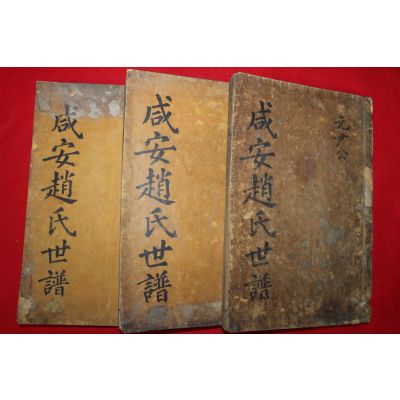 咸安趙氏世譜
咸安趙氏世譜
咸安趙氏世譜
元尹公